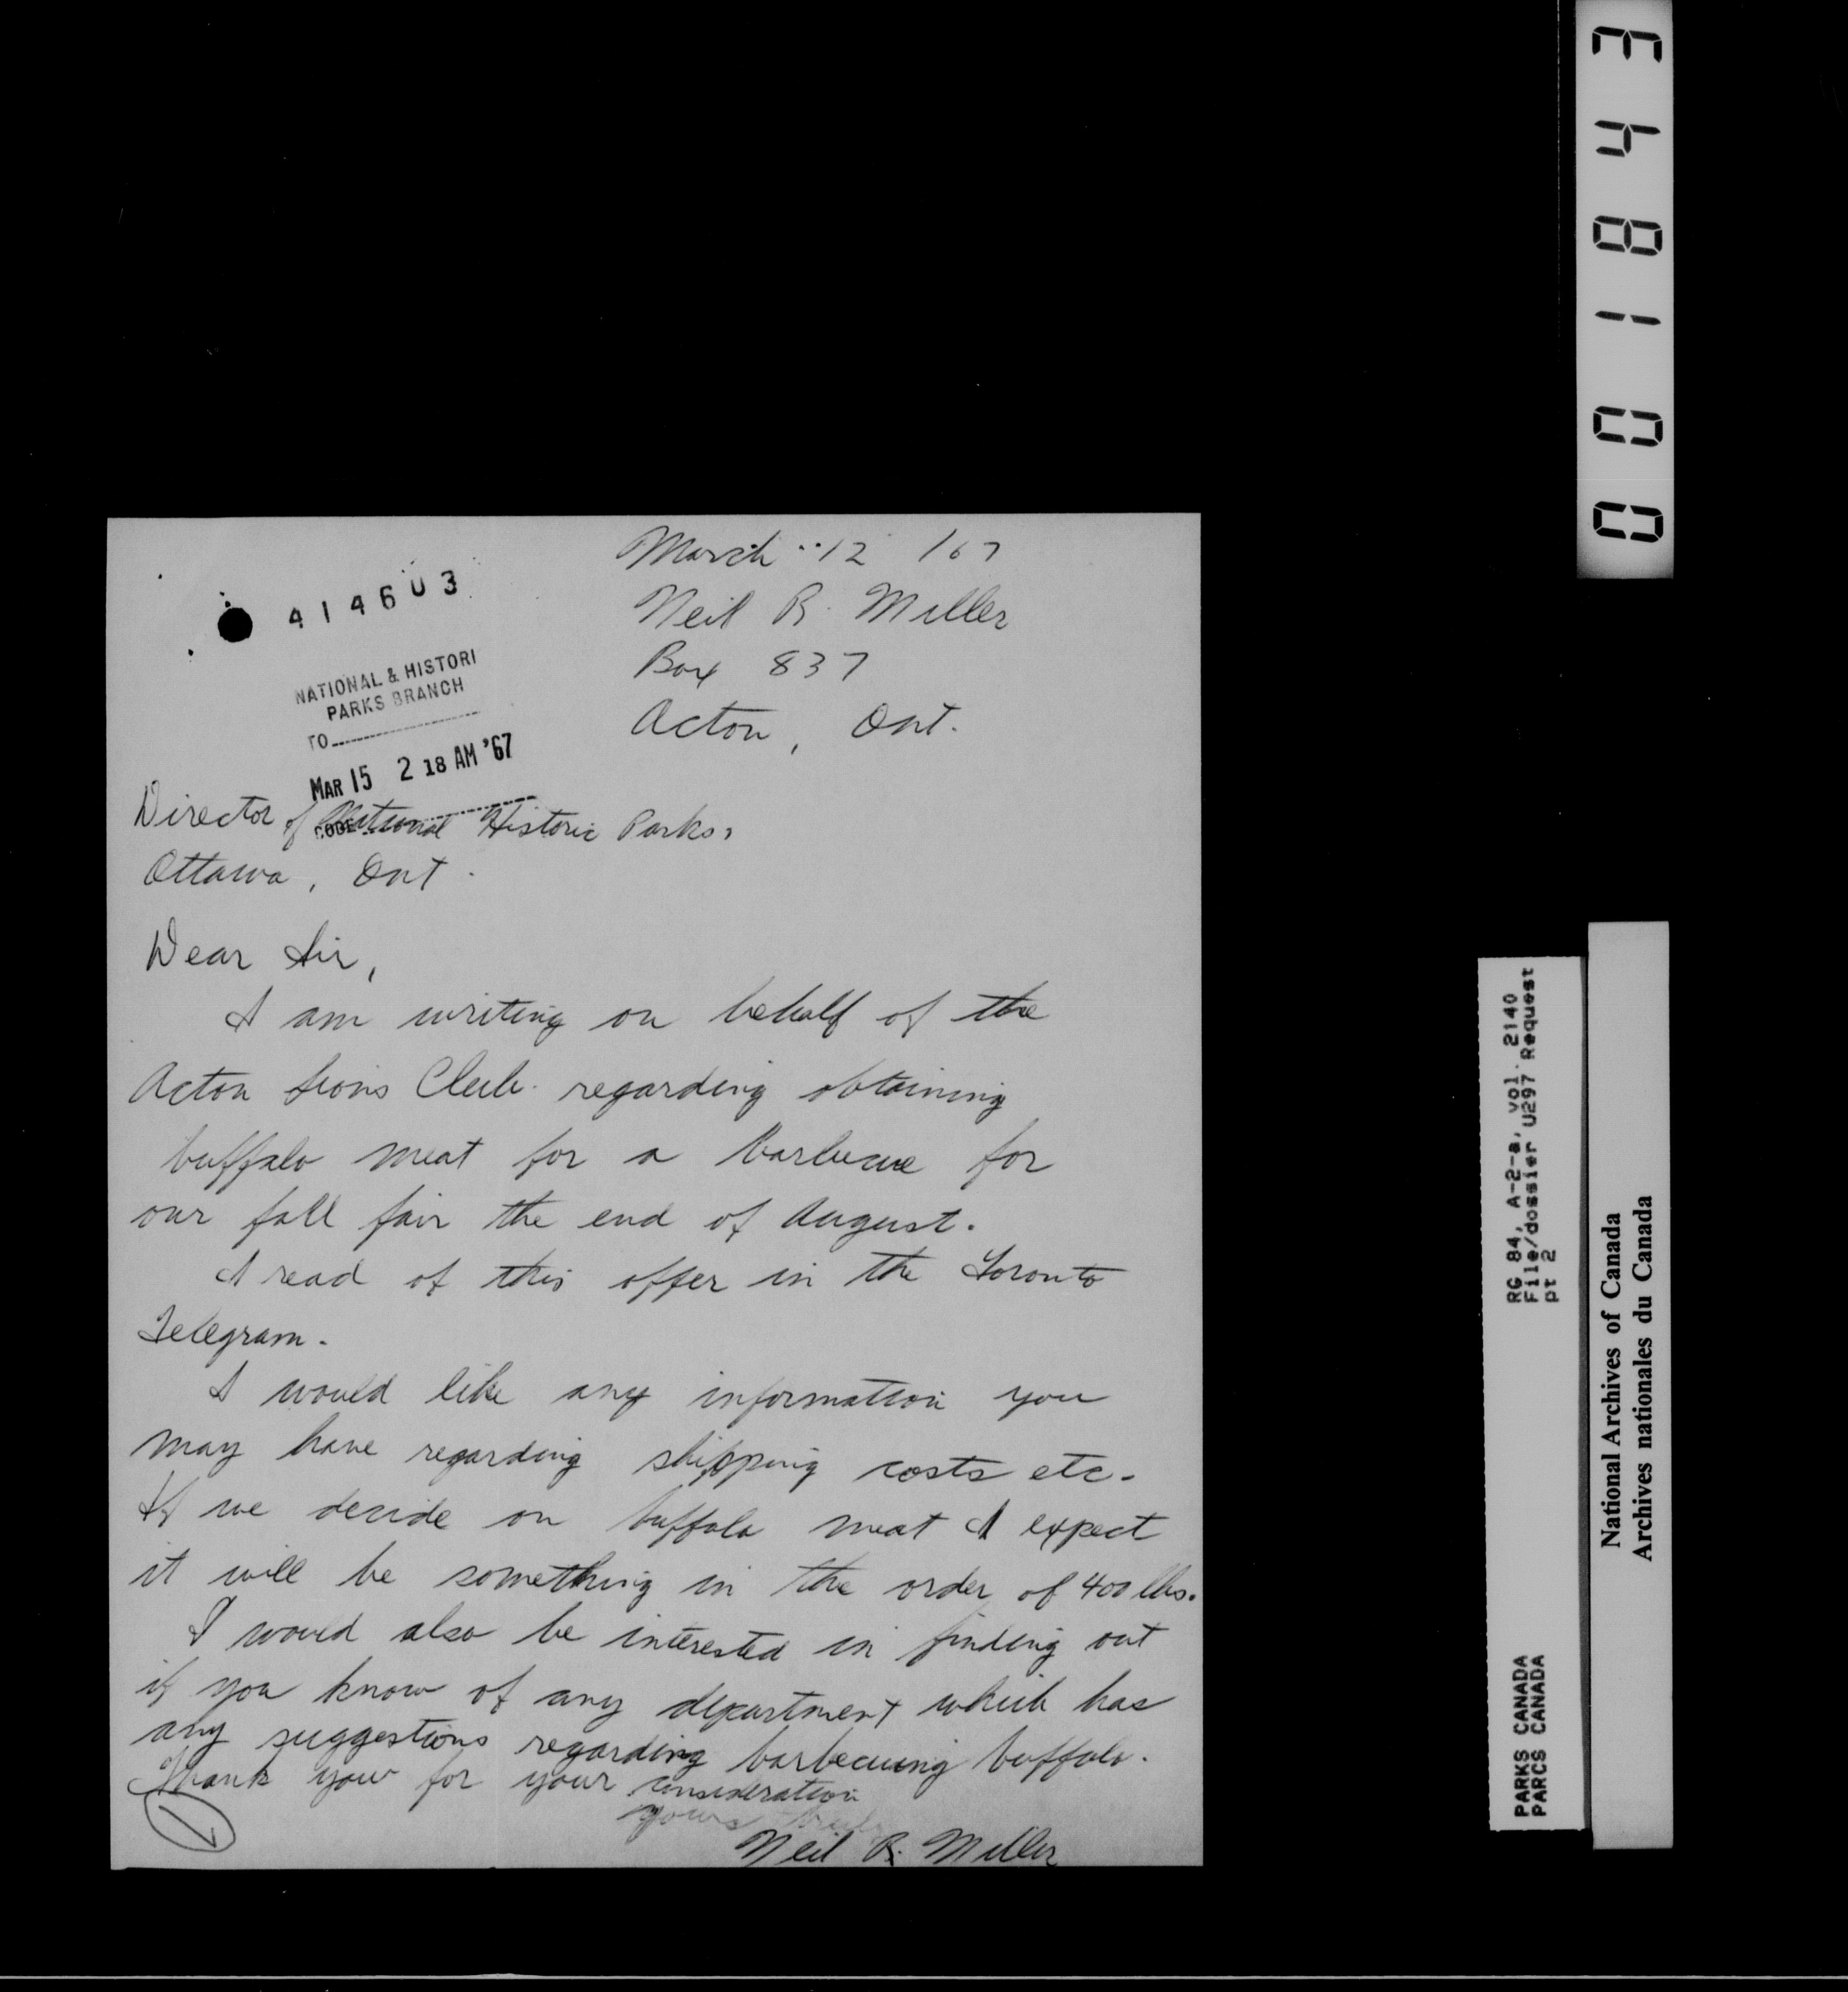 March 12 /67
Neil R. Miller
Box 837
Acton, Ont.
414603
NATIONAL & HISTORI
PARKS BRANCH
TO
MAR 15 2 18 AM '67
CODE
Director of National Historic Parks,
Ottawa, Ont.
Dear Sir,
I am writing on behalf of the
Acton Lions Club regarding obtaining
buffalo meat for a barbecue for
our fall fair the end of August.
I read of this offer in the Toronto
Telegram.
I would like any information you
may have regarding shipping costs etc.
If we decide on buffalo meat I expect
it will be something in the order of 400 lbs.
I would also be interested in finding out
if you know of any department which has
any suggestions regarding barbecuing buffalo.
Thank you for your consideration
Yours truly
Neil R. Miller
001843
RG 84, A-2-a, vol. 2140
File/dossier U297 Request
pt 2
PARKS CANADA
PARCS CANADA
National Archives of Canada
Archives nationales du Canada